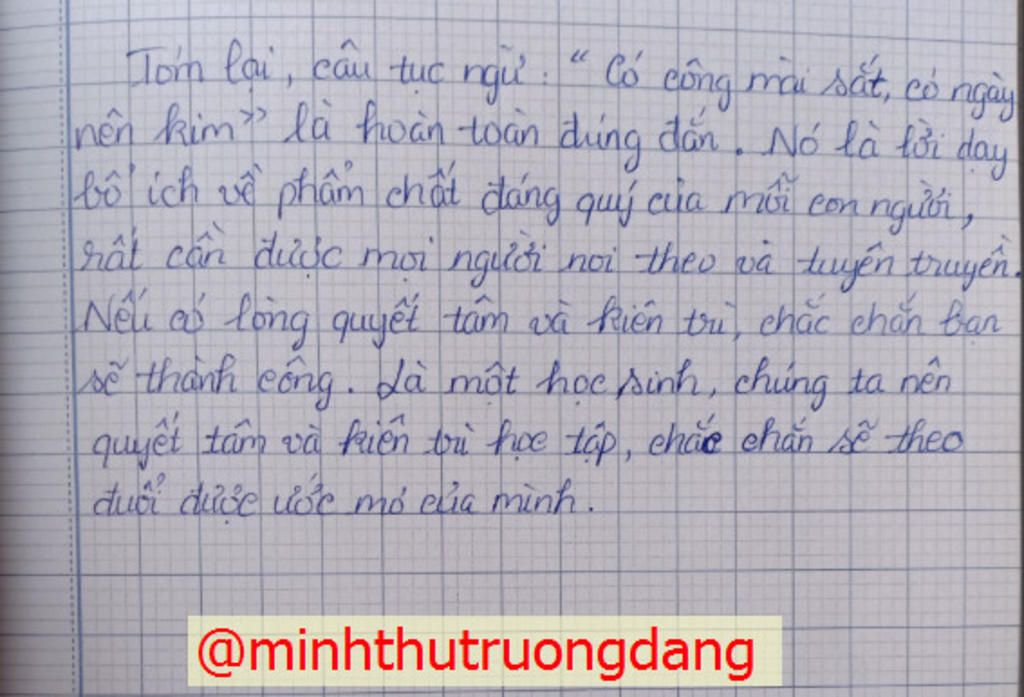 Tóm lại, câu tục ngữ : “ Có công mài sắt, có ngày
nên kim” là hoàn toàn đúng đắn. Nó là lời dạy
bổ ích về phẩm chất đáng quý của mỗi con người,
rất cần được mọi người noi theo và tuyên truyền.
Nếu có lòng quyết tâm và kiên trì, chắc chắn bạn
sẽ thành công. Là một học sinh, chúng ta nên
quyết tâm và kiên trì học tập, chắc chắn sẽ theo
đuổi được ước mơ của mình.
@minhthutruongdang